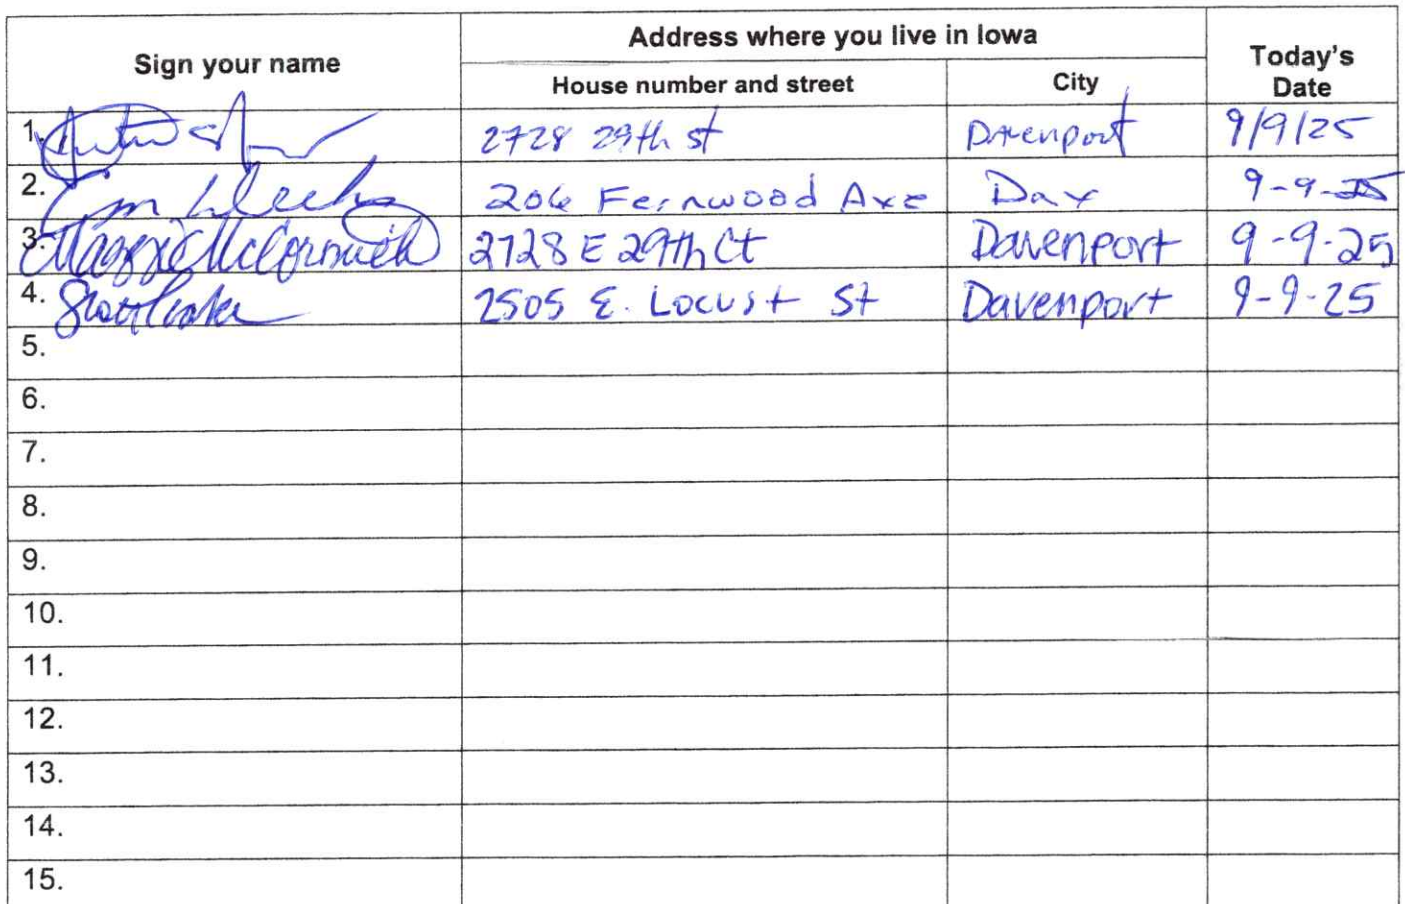 Sign your name
Address where you live in Iowa
House number and street
City
Today's Date
1. 2728 29th st Davenport 9/9/25
2. Tim 206 Fernwood Ave Dav 9-9-25
3. Maggie McCormick 2728 E 29th Ct Davenport 9-9-25
4. Scott 2505 E. Locust St Davenport 9-9-25
5.
6.
7.
8.
9.
10.
11.
12.
13.
14.
15.